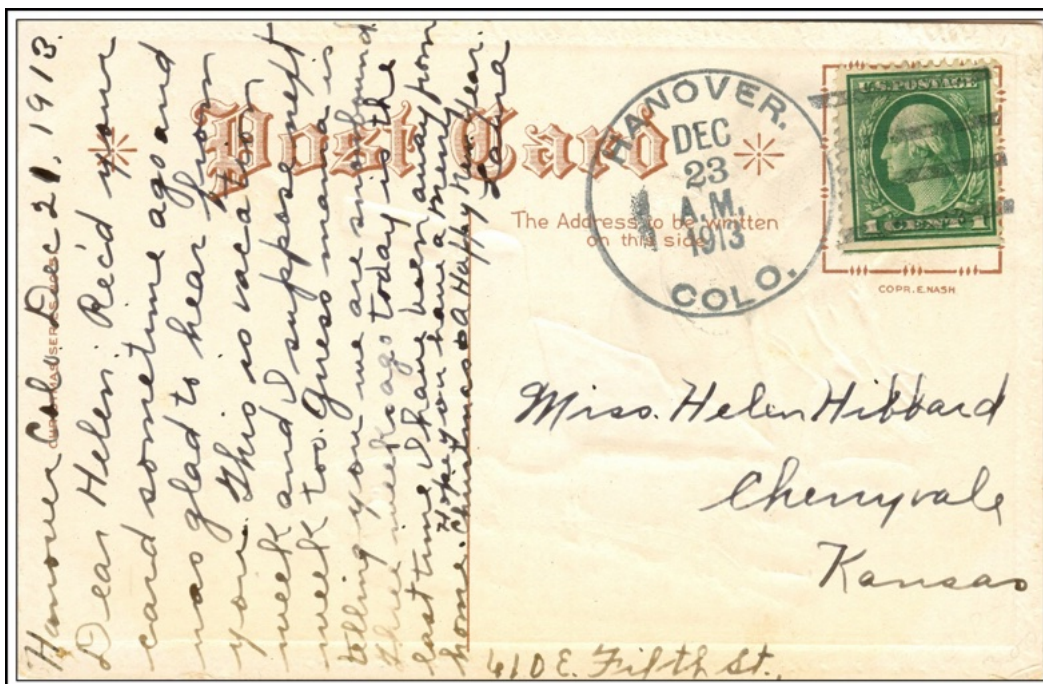 Hanover Colo. Dec 21, 1913.
Dear Helen: Rec'd your
card sometime ago and
was glad to hear from
you. This is vacation
week and I suppose next
week too. Guess mama is
telling you we are snowbound
three weeks ago today is the
last time I have been away from
home. Hope you have a Merry
Christmas & a Happy New Year.
Laura
Post Card
The Address to be written
on this side
HANOVER.
DEC
23
A.M.
1913
COLO.
U.S. POSTAGE
1 CENT 1
COPR. E. NASH
CHRISTMAS SERIES NO.
Miss. Helen Hibbard
Cherryvale
Kansas
410 E. Fifth St.,